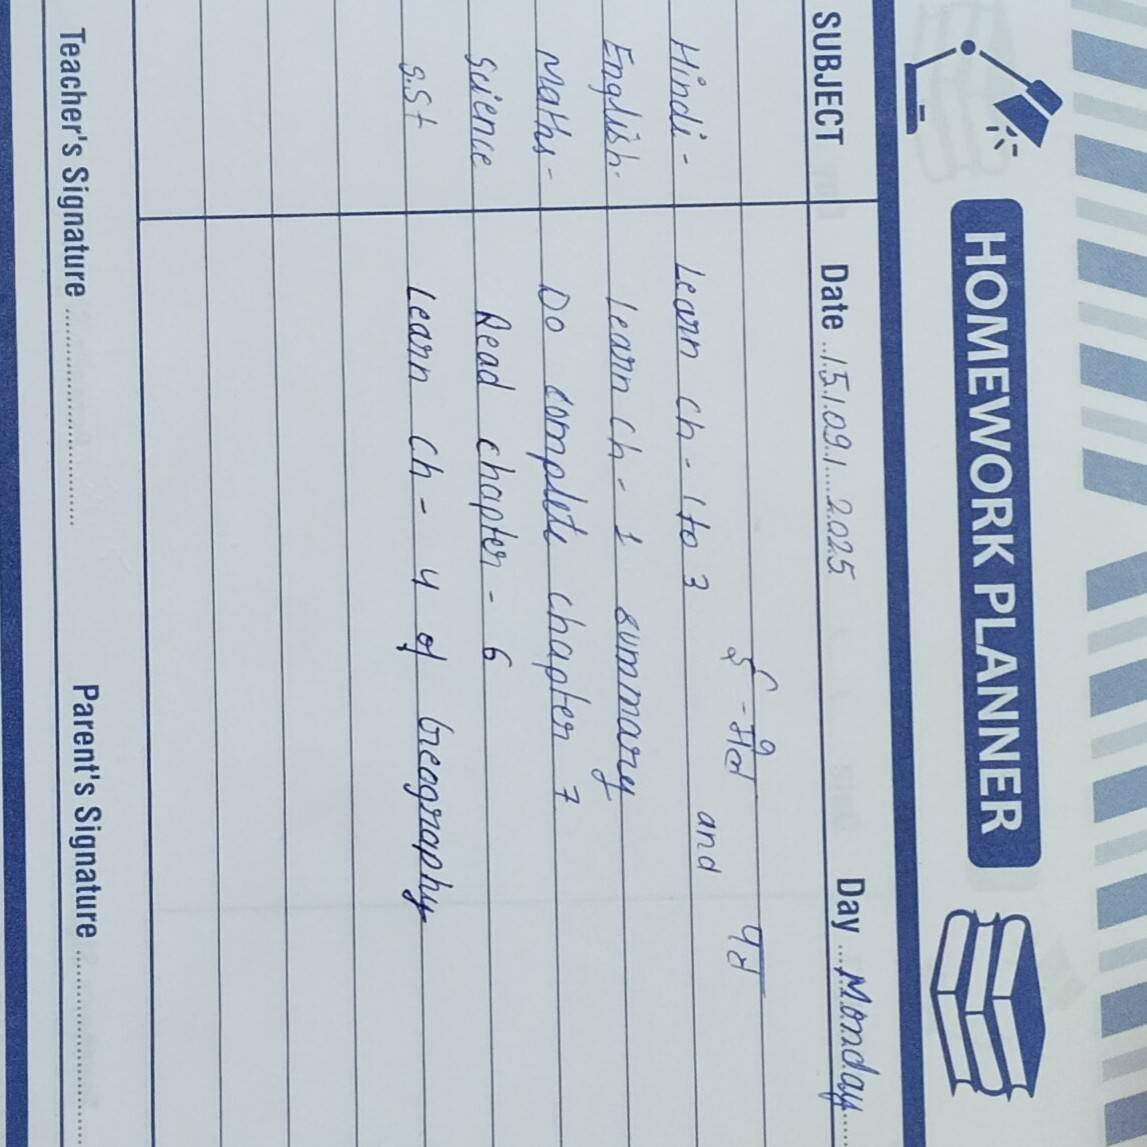 HOMEWORK PLANNER
SUBJECT Date 15/09/2025 Day Monday
ई-मेल पत्र
Hindi - Learn ch - 1 to 3 and
English - Learn ch - 1 summary
Maths - Do complete chapter 7
Science Read chapter - 6
S.St Learn Ch - 4 of Geography
Teacher's Signature Parent's Signature